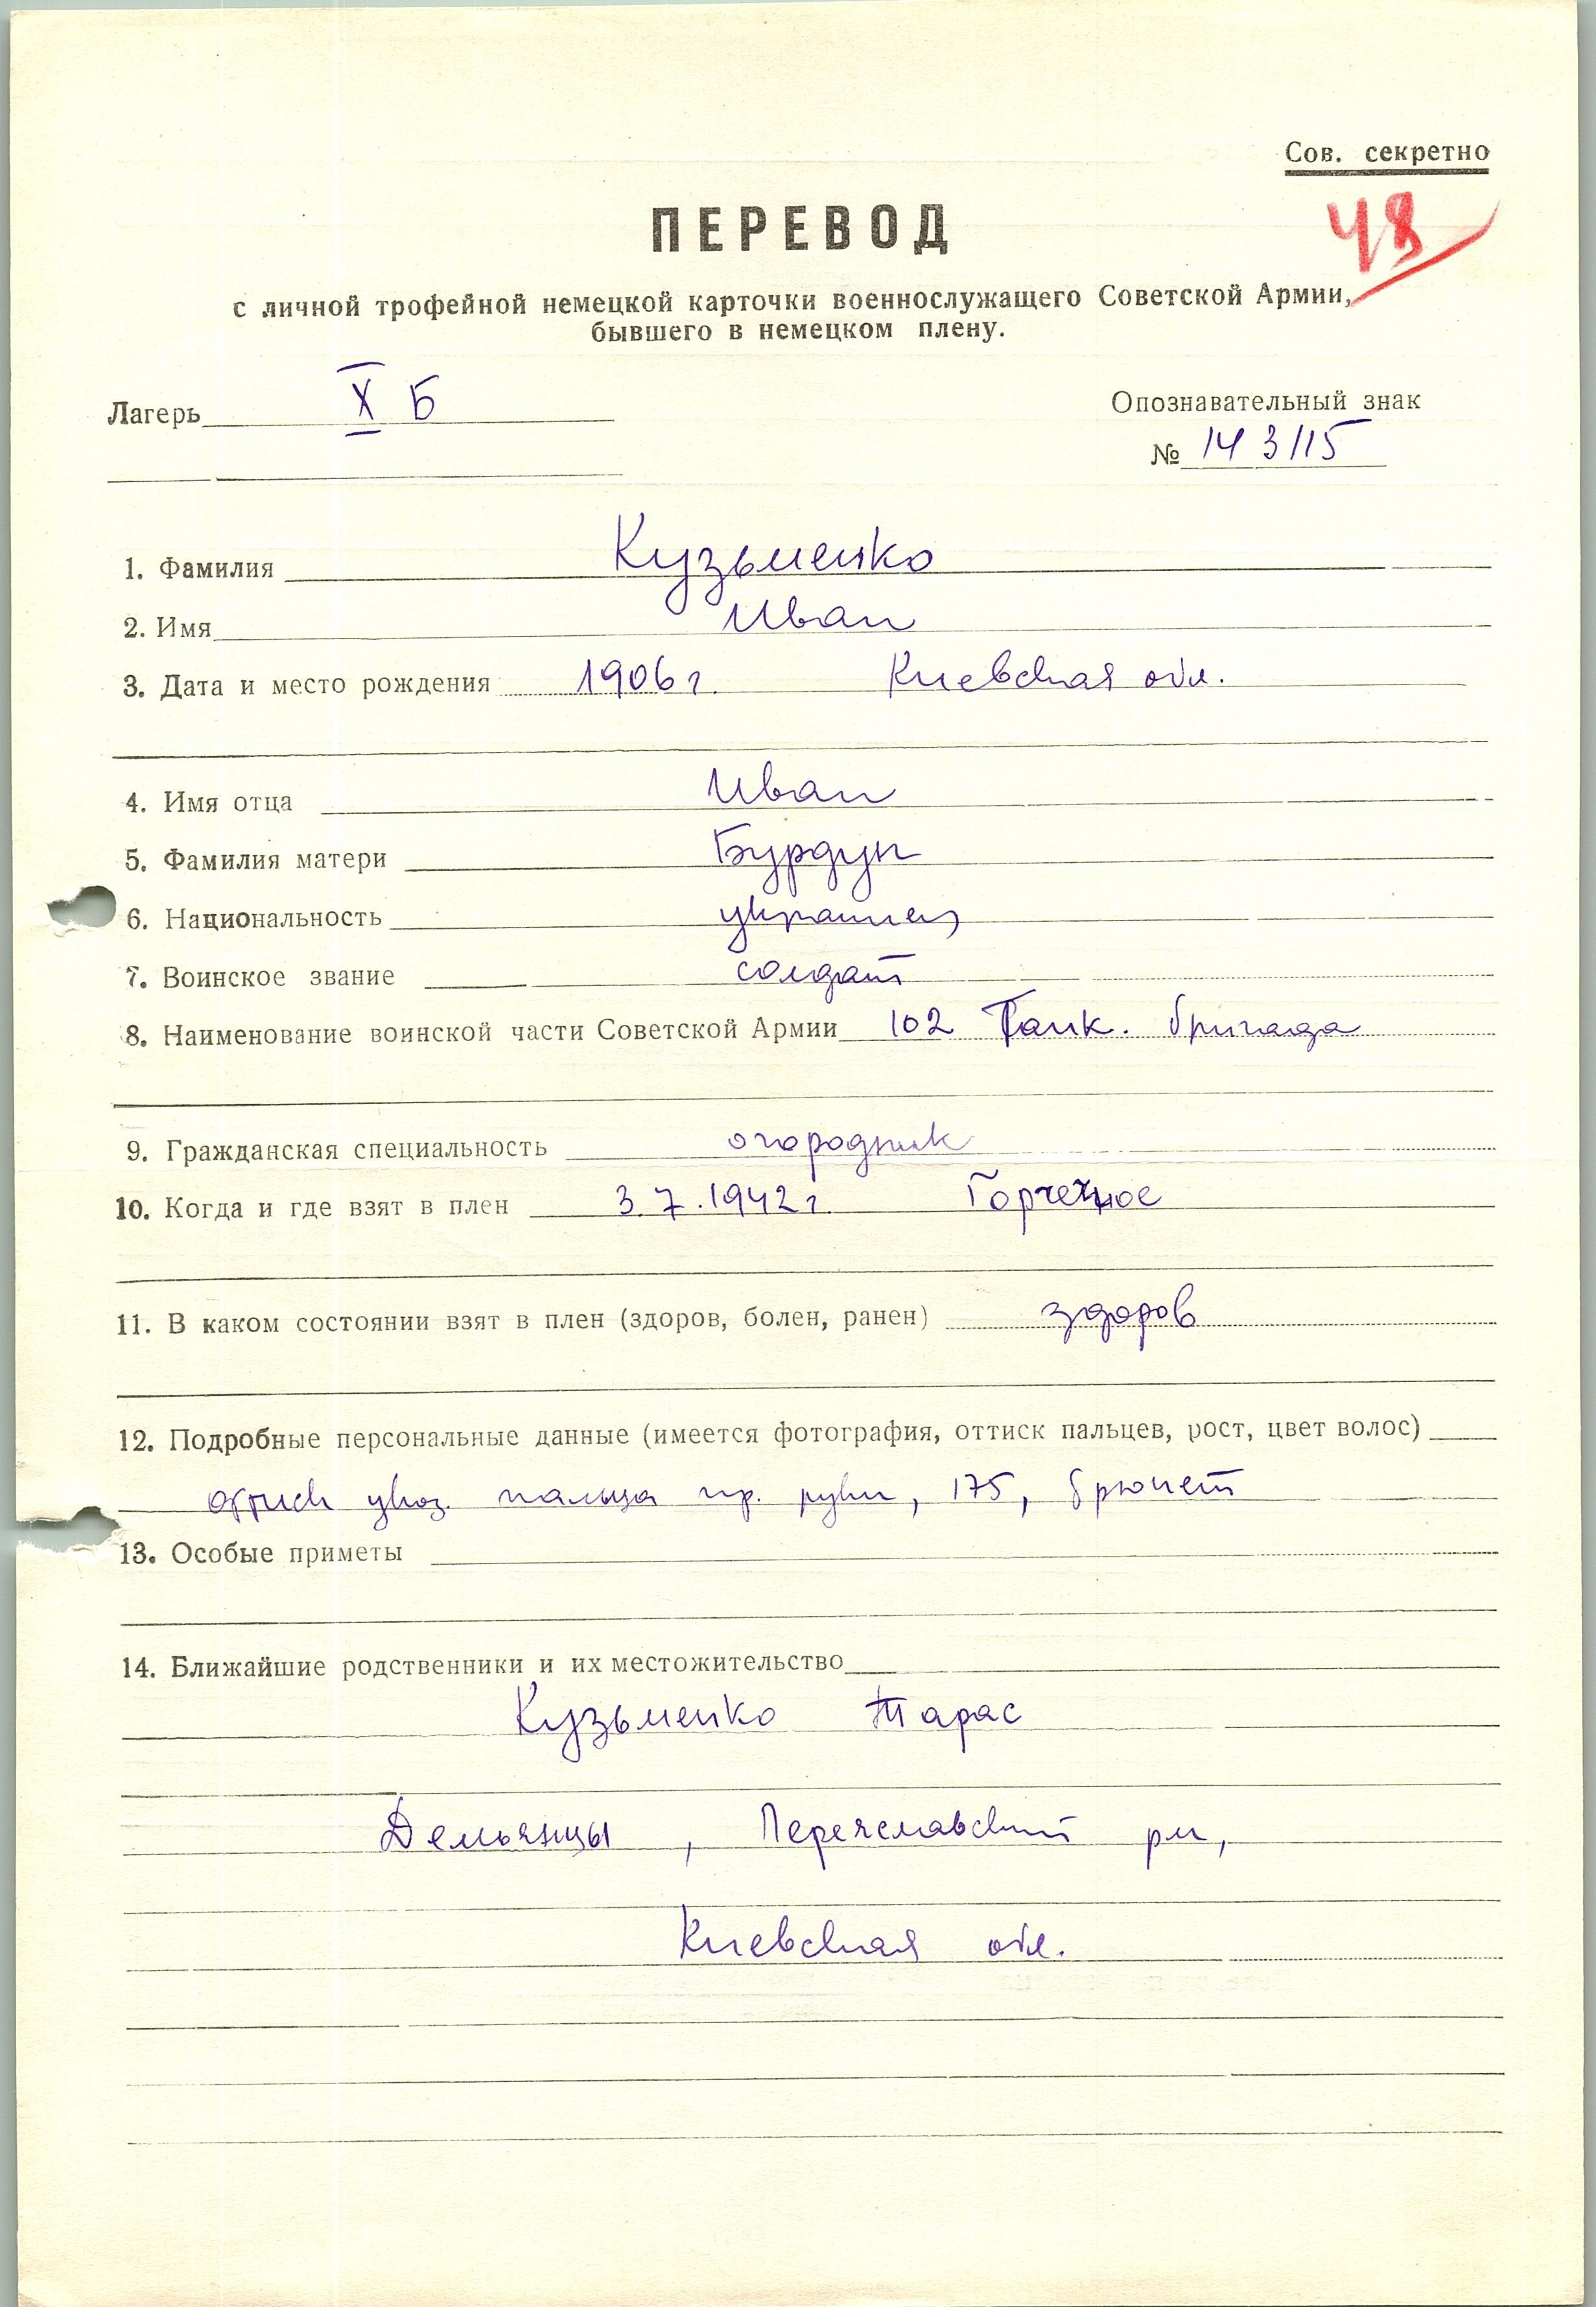 Сов. секретно
48
ПЕРЕВОД
с личной трофейной немецкой карточки военнослужащего Советской Армии,
бывшего в немецком плену.
Лагерь X Б
Опознавательный знак
№ 143115
1. Фамилия Кузьменко
2. Имя Иван
3. Дата и место рождения 1906 г. Киевская обл.
4. Имя отца Иван
5. Фамилия матери Бурдун
6. Национальность украинец
7. Воинское звание солдат
8. Наименование воинской части Советской Армии 102 Танк. бригада
9. Гражданская специальность огородник
10. Когда и где взят в плен 3.7.1942 г. Горчечное
11. В каком состоянии взят в плен (здоров, болен, ранен) здоров
12. Подробные персональные данные (имеется фотография, оттиск пальцев, рост, цвет волос)
указ. пальца пр. руки, 175, брюнет
13. Особые приметы
14. Ближайшие родственники и их местожительство
Кузьменко Тарас
Демьянцы, Переяславский рн,
Киевская обл.